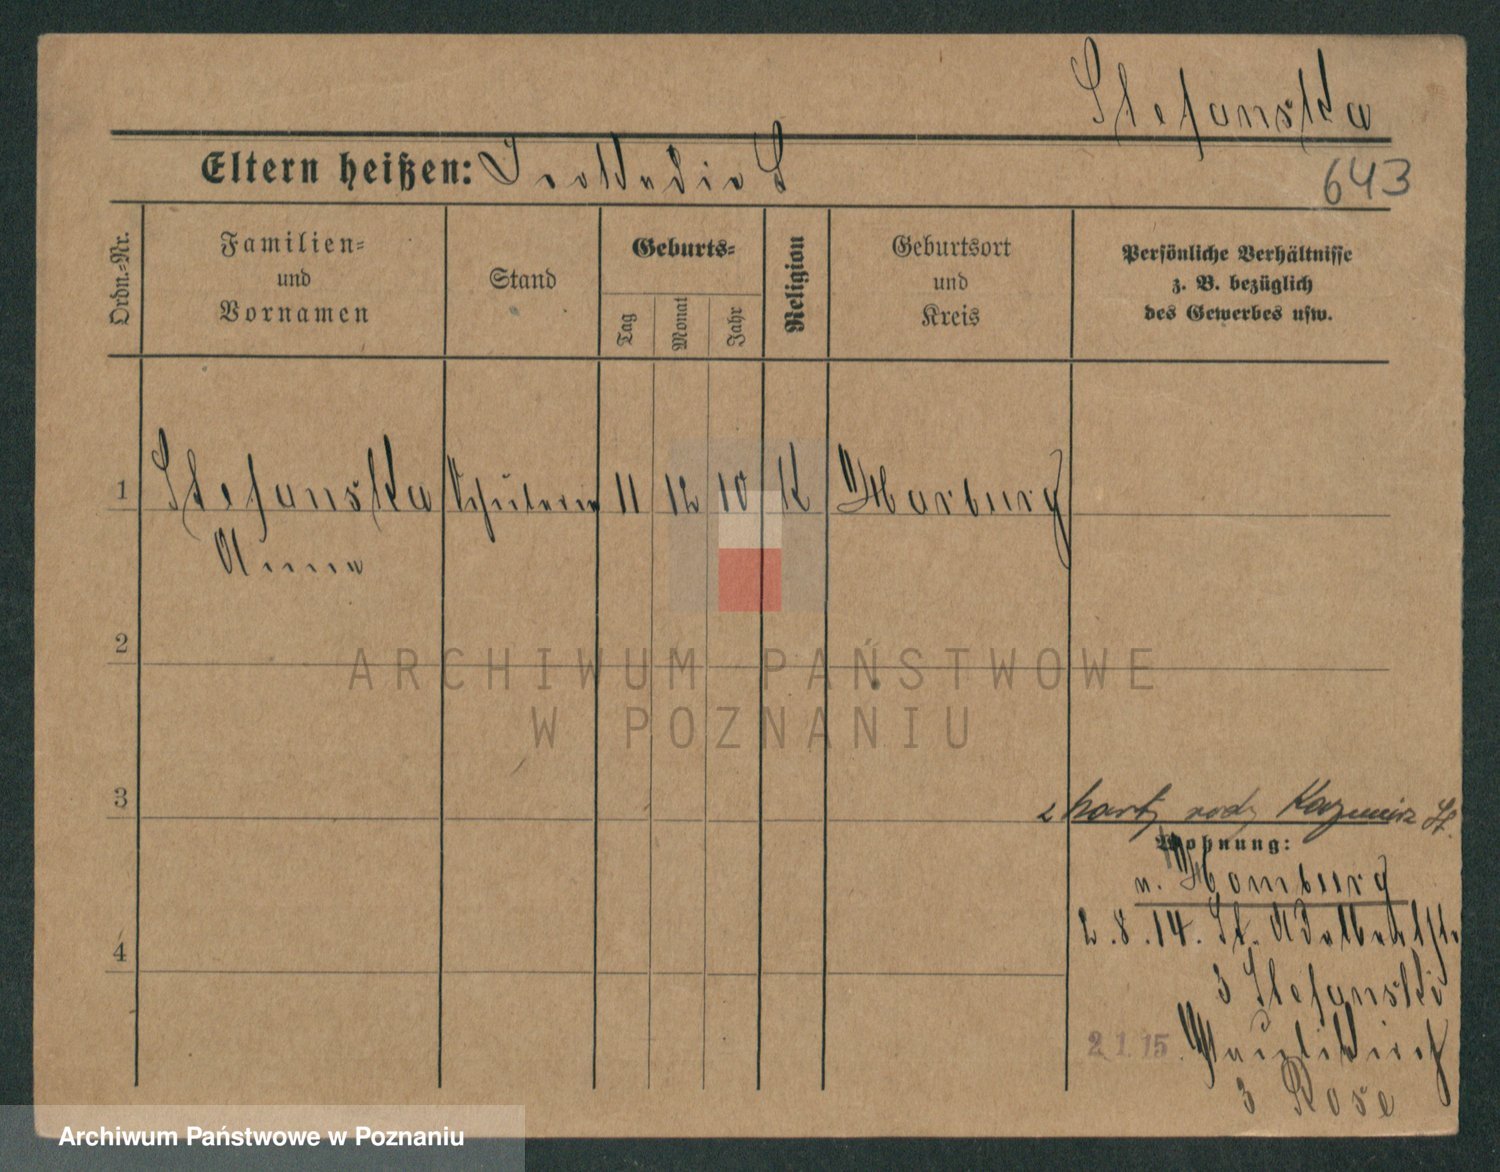 Stefanska
Eltern heißen:
643
Ordn.=Nr.
Familien=
und
Vornamen
Stand
Geburts=
Tag
Monat
Jahr
Religion
Geburtsort
und
Kreis
Persönliche Verhältnisse
z. B. bezüglich
des Gewerbes usw.
1 Stefanska Schülerin 11 12 10 K Harburg
Anna
2
ARCHIWUM PAŃSTWOWE
W POZNANIU
3
z karty rodz Kazmierz St.
Wohnung:
n. Homburg
4
2.8.14. St. Adalbertstr
3 Stefanski
2.1.15.
3 Rose
Archiwum Państwowe w Poznaniu